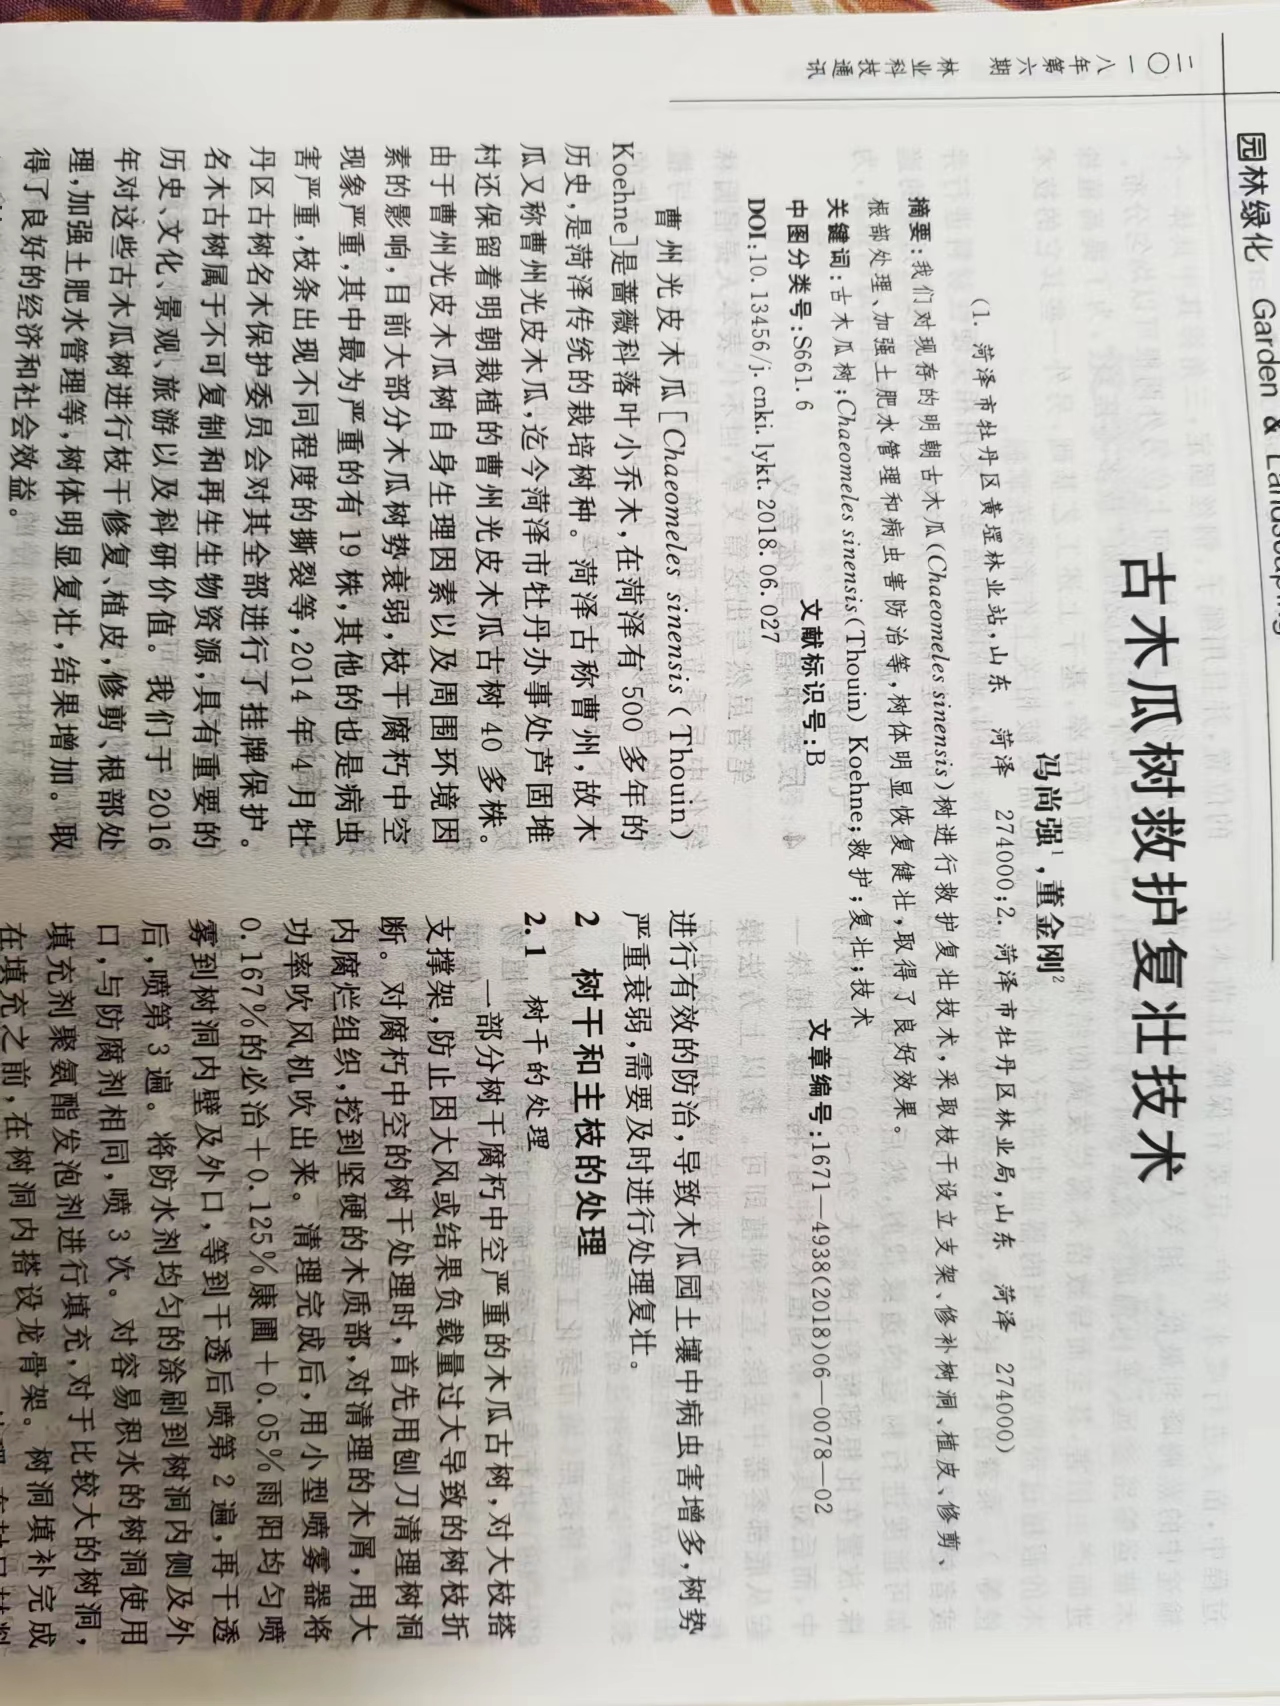 园林绿化 Garden & Landscaping
二〇一八年第六期 林业科技通讯
古木瓜树救护复壮技术
冯尚强1,董金刚2
(1.菏泽市牡丹区黄堽林业站,山东 菏泽 274000;2.菏泽市牡丹区林业局,山东 菏泽 274000)
摘要:我们对现存的明朝古木瓜((Chaeomeles sinensis)树进行救护复壮技术,采取枝干设立支架、修补树洞、植皮、修剪、
根部处理、加强土肥水管理和病虫害防治等,树体明显恢复健壮,取得了良好效果。
关键词:古木瓜树;Chaeomeles sinensis(Thouin) Koehne;救护;复壮;技术
中图分类号:S661.6 文献标识号:B 文章编号:1671—4938(2018)06—0078—02
DOI:10.13456/j.cnki.lykt.2018.06.027
曹州光皮木瓜[Chaeomeles sinensis(Thouin)
Koehne]是蔷薇科落叶小乔木,在菏泽有 500 多年的
历史,是菏泽传统的栽培树种。菏泽古称曹州,故木
瓜又称曹州光皮木瓜,迄今菏泽市牡丹办事处芦固堆
村还保留着明朝栽植的曹州光皮木瓜古树 40 多株。
由于曹州光皮木瓜树自身生理因素以及周围环境因
素的影响,目前大部分木瓜树势衰弱,枝干腐朽中空
现象严重,其中最为严重的有 19 株,其他的也是病虫
害严重,枝条出现不同程度的撕裂等,2014 年 4 月牡
丹区古树名木保护委员会对其全部进行了挂牌保护。
名木古树属于不可复制和再生生物资源,具有重要的
历史、文化、景观、旅游以及科研价值。我们于 2016
年对这些古木瓜树进行枝干修复、植皮,修剪、根部处
理,加强土肥水管理等,树体明显复壮,结果增加。取
得了良好的经济和社会效益。
进行有效的防治,导致木瓜园土壤中病虫害增多,树势
严重衰弱,需要及时进行处理复壮。
2 树干和主枝的处理
2.1 树干的处理
一部分树干腐朽中空严重的木瓜古树,对大枝搭
支撑架,防止因大风或结果负载量过大导致的树枝折
断。对腐朽中空的树干处理时,首先用刨刀清理树洞
内腐烂组织,挖到坚硬的木质部,对清理的木屑,用大
功率吹风机吹出来。清理完成后,用小型喷雾器将
0.167%的必治+0.125%康圃+0.05%雨阳均匀喷
雾到树洞内壁及外口,等到干透后喷第 2 遍,再干透
后,喷第 3 遍。将防水剂均匀的涂刷到树洞内侧及外
口,与防腐剂相同,喷 3 次。对容易积水的树洞使用
填充剂聚氨酯发泡剂进行填充,对于比较大的树洞,
在填充之前,在树洞内搭设龙骨架。树洞填补完成